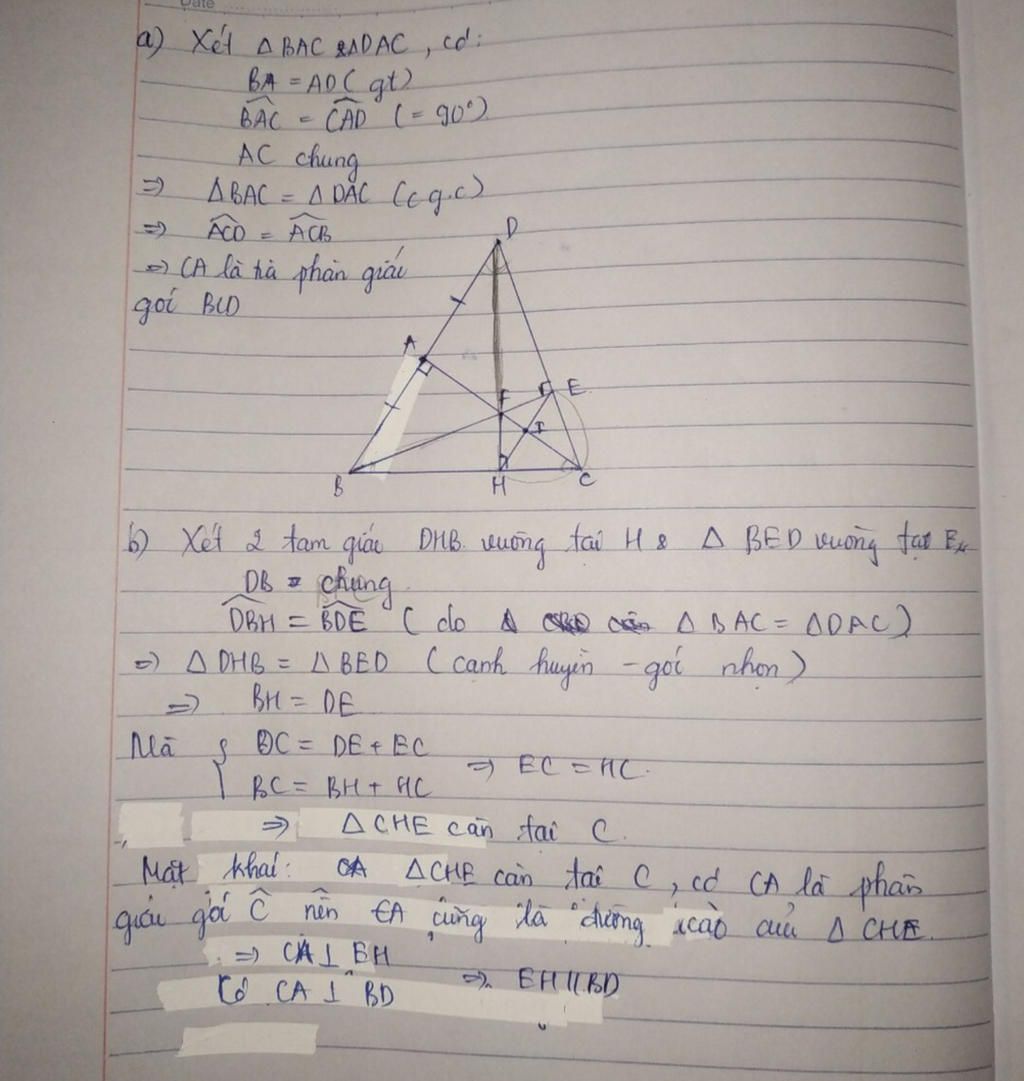 Date
a) Xét △BAC & △DAC, có:
BA = AD (gt)
BAC = CAD (= 90°)
AC chung
=> △BAC = △DAC (c g.c)
=> ACD = ACB
=> CA là tia phân giác
góc BCD
D
A
F
E
I
B
H
C
b) Xét 2 tam giác DHB vuông tại H & △ BED vuông tại E
DB = chung
DBH = BDE (do △ BAC = △DAC)
=> △ DHB = △ BED (cạnh huyền - góc nhọn)
=> BH = DE
Mà { DC = DE + EC
BC = BH + HC
=> EC = HC.
=> △CHE cân tại C.
Mặt khác: △CHE cân tại C, có CA là phân
giác góc Ĉ nên CA cũng là đường cao của △ CHE.
=> CA ⊥ EH
Có CA ⊥ BD
=> EH // BD